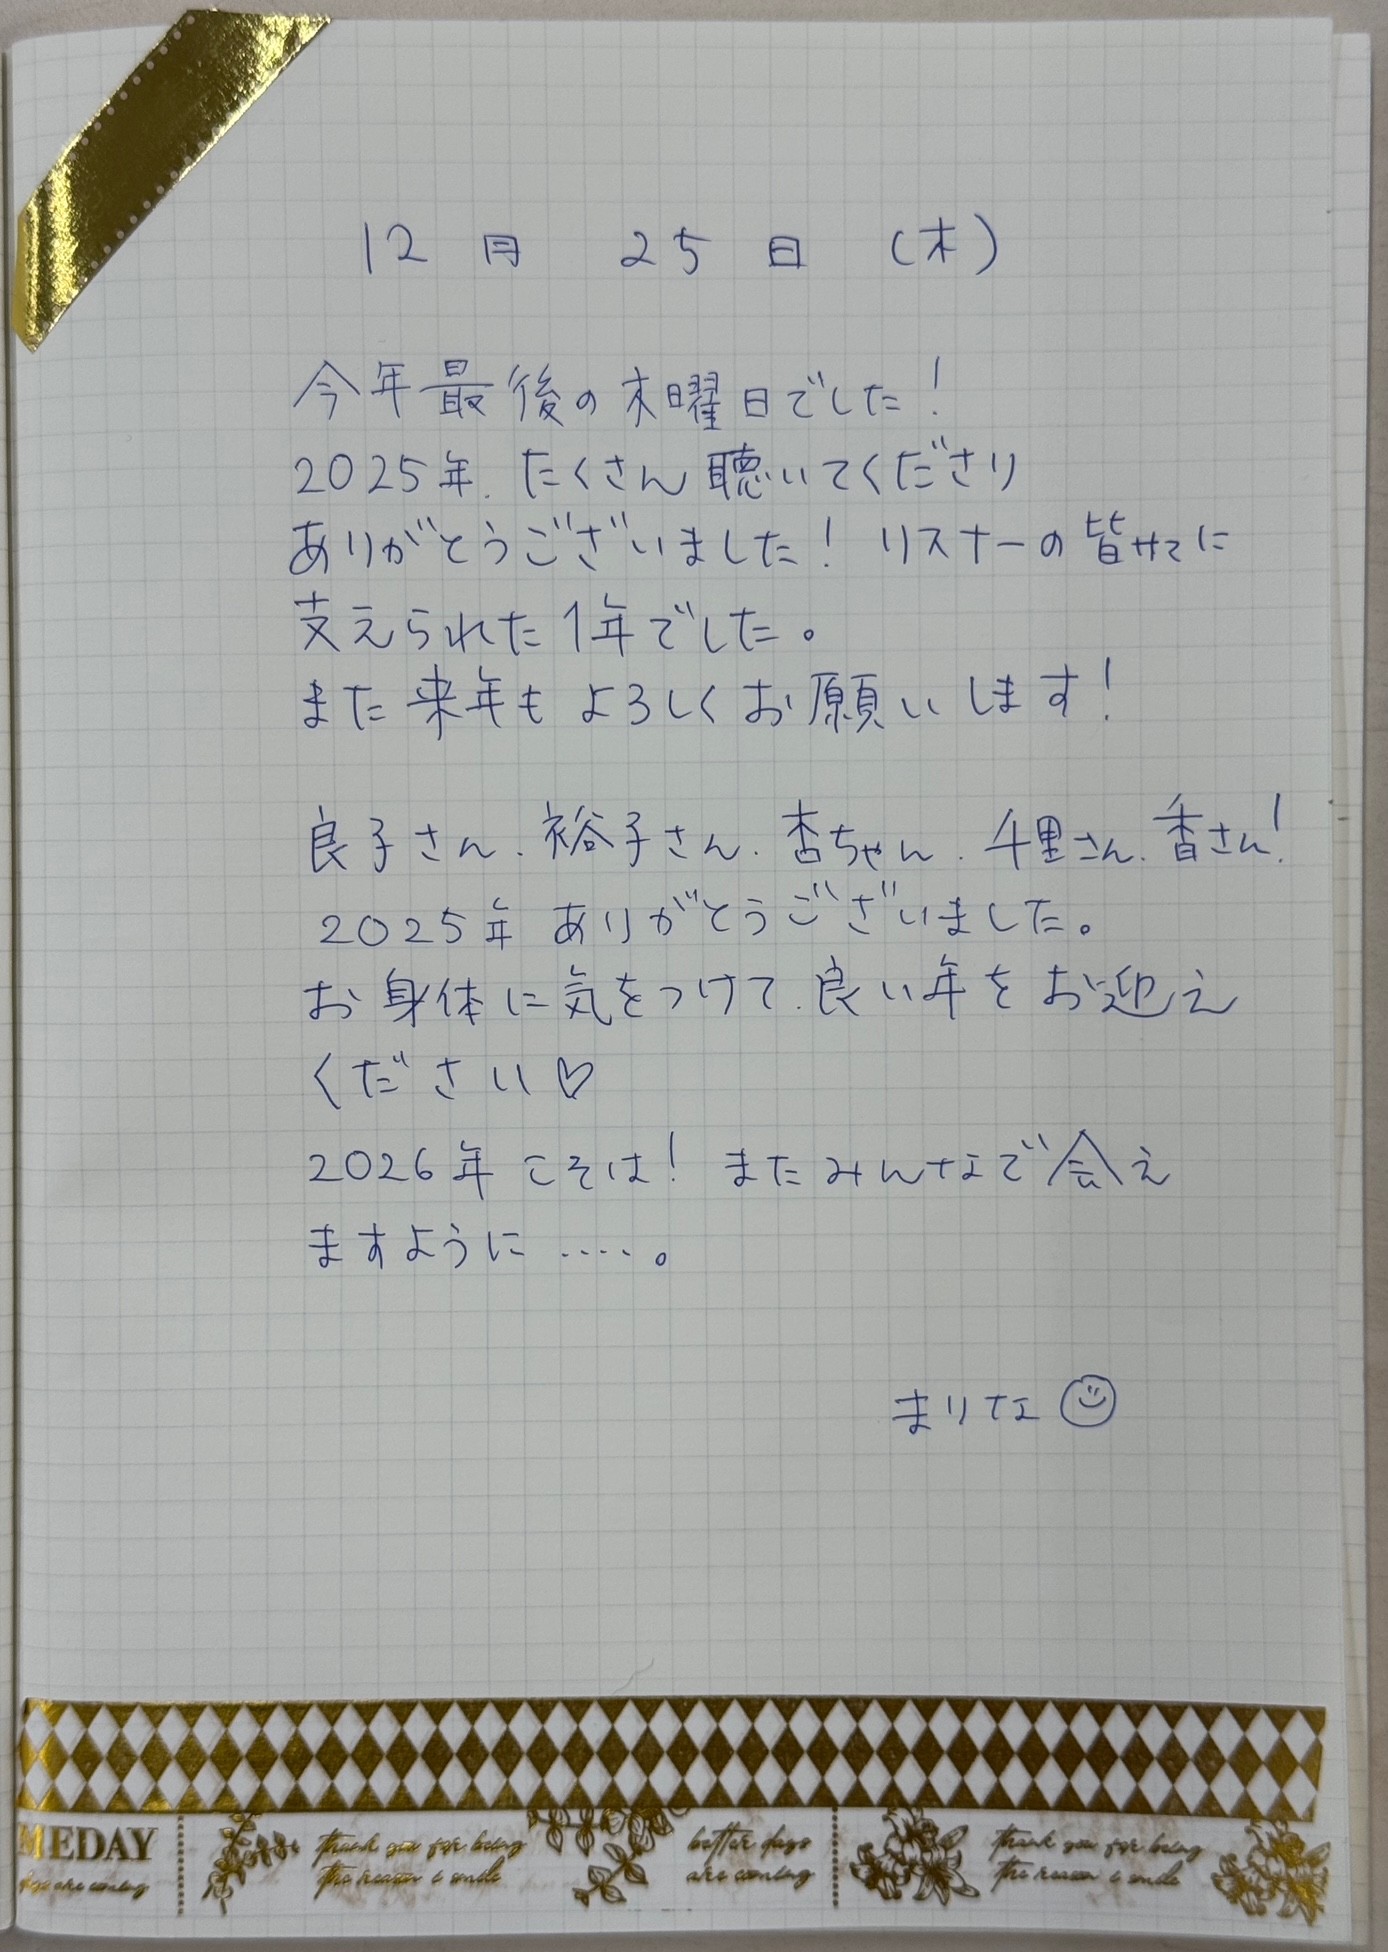 12月 25日 (木)
今年最後の木曜日でした!
2025年、たくさん聴いてくださり
ありがとうございました! リスナーの皆サマに
支えられた1年でした。
また来年もよろしくお願いします!
良子さん、裕子さん、杏ちゃん、千里さん、香さん!
2025年ありがとうございました。
お身体に気をつけて、良い年をお迎え
ください♡
2026年こそは! またみんなで会え
ますように‥‥。
まりな☺
MEDAY
days are coming
thank you for being
the reason i smile
better days
are coming
thank you for being
the reason i smile